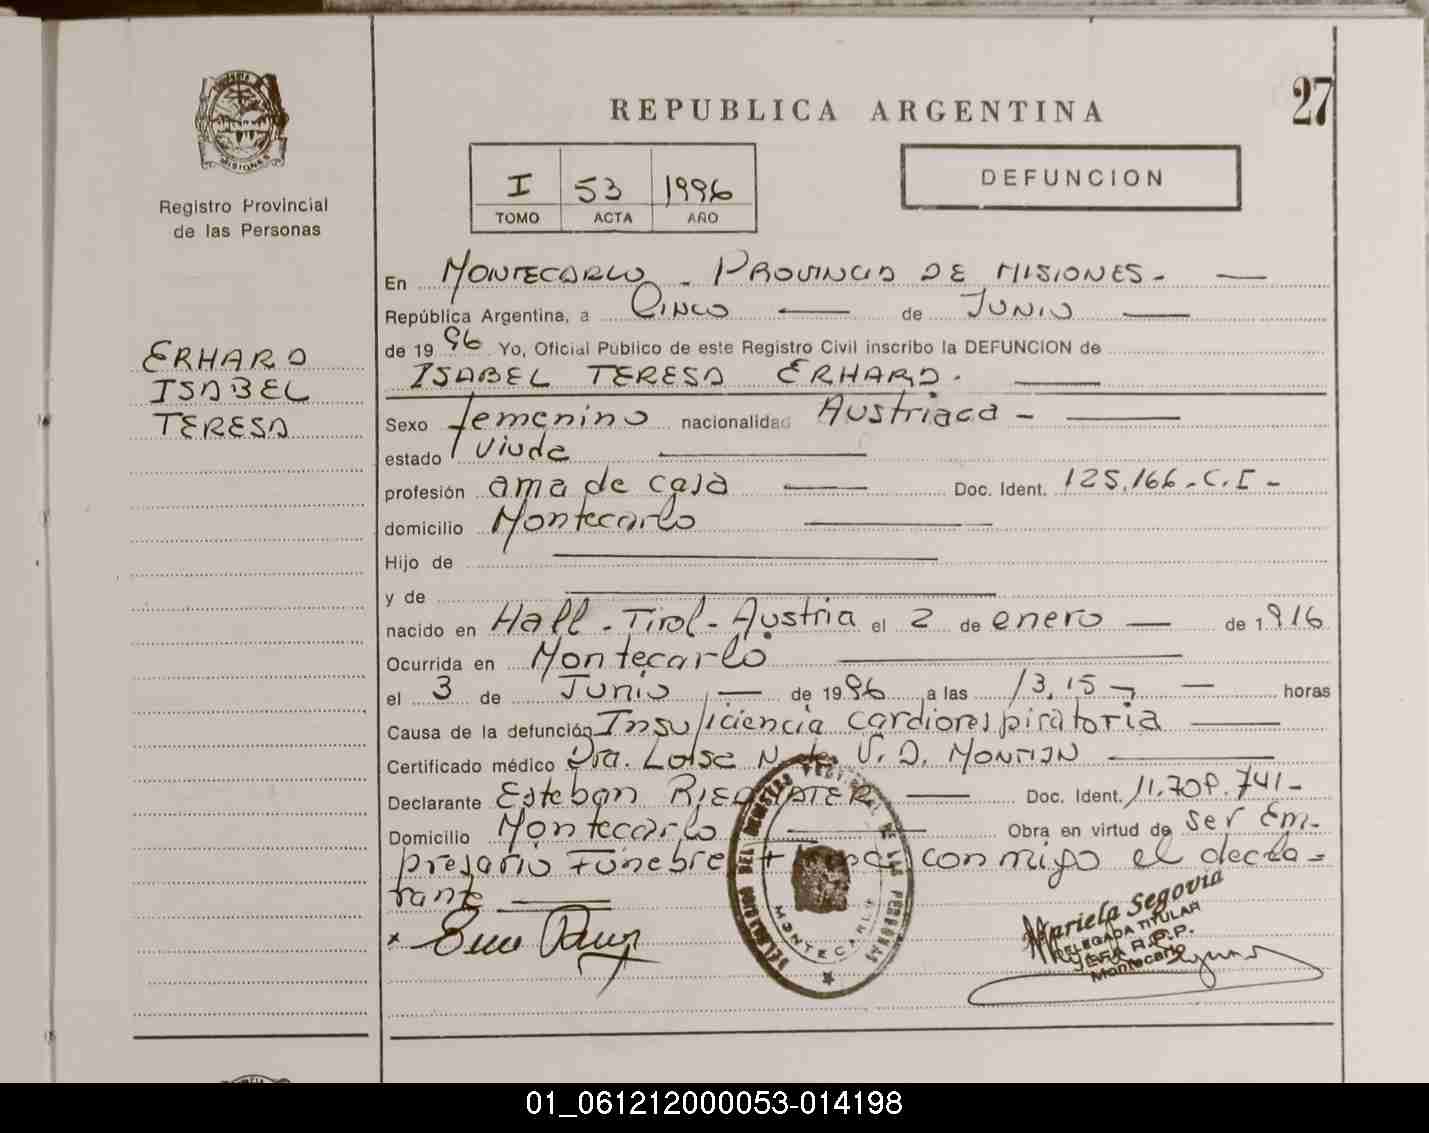 27
REPUBLICA ARGENTINA
MISIONES
Registro Provincial
de las Personas
I 53 1996
TOMO ACTA AÑO
DEFUNCION
ERHARD
ISABEL
TERESA
En MONTECARLO - PROVINCIA DE MISIONES -
República Argentina, a CINCO de JUNIO
de 19 96 Yo, Oficial Público de este Registro Civil inscribo la DEFUNCION de
ISABEL TERESA ERHARD.
Sexo femenino nacionalidad Austriaca -
estado Viuda
profesión ama de casa Doc. Ident. 125.166 - C.I -
domicilio Montecarlo
Hijo de
y de
nacido en Hall - Tirol - Austria el 2 de enero de 1916
Ocurrida en Montecarlo
el 3 de Junio de 1996 a las 13,15 horas
Causa de la defunción Insuficiencia cardiorespiratoria
Certificado médico Dra. N. de V. D.
Declarante Esteban Doc. Ident. 11.708.741 -
Domicilio Montecarlo Obra en virtud de ser em-
presario Funebre conmigo el decla-
rante
DEL REGISTRO PROVINCIAL DE LAS PERSONAS
MONTECARLO
Mariela Segovia
DELEGADA TITULAR
R.P.P.
Montecarlo
01_061212000053-014198